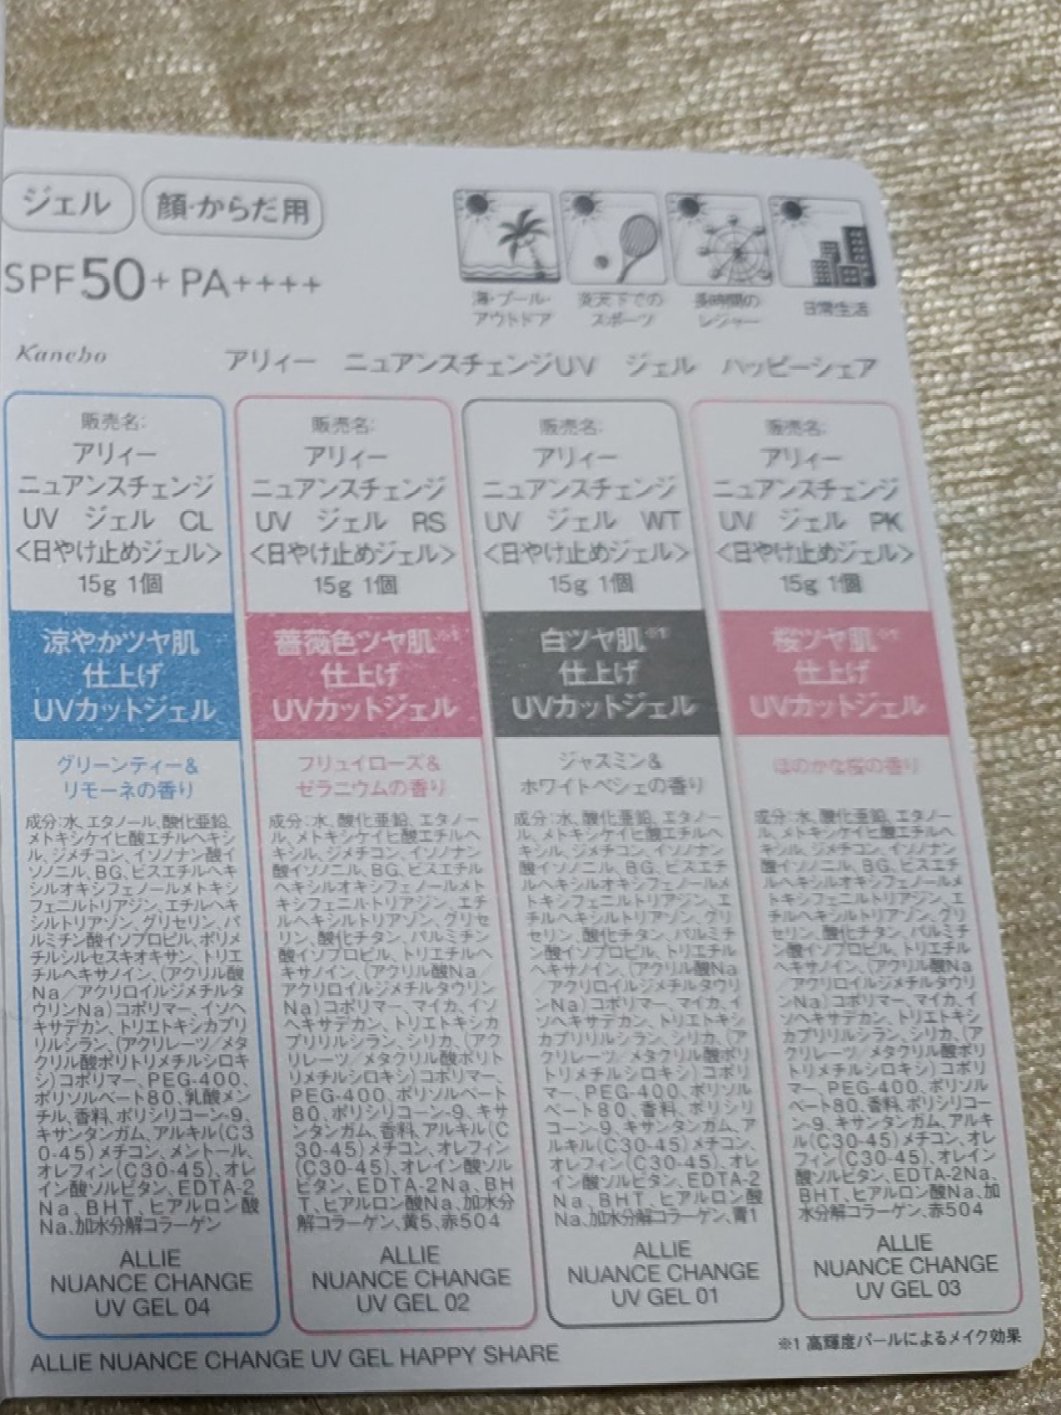 ジェル 顔・からだ用
SPF50+ PA++++
海・プール・
アウトドア
炎天下での
スポーツ
長時間の
レジャー
日常生活
Kanebo アリィー ニュアンスチェンジUV ジェル ハッピーシェア
販売名:
アリィー
ニュアンスチェンジ
UV ジェル CL
<日やけ止めジェル>
15g 1個
涼やかツヤ肌
仕上げ
UVカットジェル
グリーンティー&
リモーネの香り
成分:水、エタノール、酸化亜鉛、
メトキシケイヒ酸エチルヘキシ
ル、ジメチコン、イソノナン酸イ
ソノニル、BG、ビスエチルヘキ
シルオキシフェノールメトキシ
フェニルトリアジン、エチルヘキ
シルトリアゾン、グリセリン、パ
ルミチン酸イソプロピル、ポリメ
チルシルセスキオキサン、トリエ
チルヘキサノイン、(アクリル酸
Na/アクリロイルジメチルタ
ウリンNa)コポリマー、イソヘ
キサデカン、トリエトキシカプリ
リルシラン、(アクリレーツ/メタ
クリル酸ポリトリメチルシロキ
シ)コポリマー、PEG-400、
ポリソルベート80、乳酸メン
チル、香料、ポリシリコーン-9、
キサンタンガム、アルキル(C3
0-45)メチコン、メントール、
オレフィン(C30-45)、オレ
イン酸ソルビタン、EDTA-2
Na、BHT、ヒアルロン酸
Na、加水分解コラーゲン
ALLIE
NUANCE CHANGE
UV GEL 04
販売名:
アリィー
ニュアンスチェンジ
UV ジェル RS
<日やけ止めジェル>
15g 1個
薔薇色ツヤ肌※1
仕上げ
UVカットジェル
フリュイローズ&
ゼラニウムの香り
成分:水、酸化亜鉛、エタノー
ル、メトキシケイヒ酸エチルヘ
キシル、ジメチコン、イソノナン
酸イソノニル、BG、ビスエチル
ヘキシルオキシフェノールメト
キシフェニルトリアジン、エチ
ルヘキシルトリアゾン、グリセ
リン、酸化チタン、パルミチン
酸イソプロピル、トリエチルヘ
キサノイン、(アクリル酸Na/
アクリロイルジメチルタウリン
Na)コポリマー、マイカ、イソ
ヘキサデカン、トリエトキシカ
プリリルシラン、シリカ、(アク
リレーツ/メタクリル酸ポリト
リメチルシロキシ)コポリマー、
PEG-400、ポリソルベート
80、ポリシリコーン-9、キサ
ンタンガム、香料、アルキル(C
30-45)メチコン、オレフィン
(C30-45)、オレイン酸ソル
ビタン、EDTA-2Na、BH
T、ヒアルロン酸Na、加水分
解コラーゲン、黄5、赤504
ALLIE
NUANCE CHANGE
UV GEL 02
販売名:
アリィー
ニュアンスチェンジ
UV ジェル WT
<日やけ止めジェル>
15g 1個
白ツヤ肌※1
仕上げ
UVカットジェル
ジャスミン&
ホワイトペシェの香り
成分:水、酸化亜鉛、エタノー
ル、メトキシケイヒ酸エチルヘ
キシル、ジメチコン、イソノナン
酸イソノニル、BG、ビスエチ
ルヘキシルオキシフェノールメ
トキシフェニルトリアジン、エ
チルヘキシルトリアゾン、グリ
セリン、酸化チタン、パルミチ
ン酸イソプロピル、トリエチル
ヘキサノイン、(アクリル酸Na
/アクリロイルジメチルタウリ
ンNa)コポリマー、マイカ、イ
ソヘキサデカン、トリエトキシ
カプリリルシラン、シリカ、(ア
クリレーツ/メタクリル酸ポリ
トリメチルシロキシ)コポリ
マー、PEG-400、ポリソル
ベート80、香料、ポリシリ
コーン-9、キサンタンガム、ア
ルキル(C30-45)メチコン、
オレフィン(C30-45)、オレ
イン酸ソルビタン、EDTA-2
Na、BHT、ヒアルロン酸
Na、加水分解コラーゲン、青1
ALLIE
NUANCE CHANGE
UV GEL 01
販売名:
アリィー
ニュアンスチェンジ
UV ジェル PK
<日やけ止めジェル>
15g 1個
桜ツヤ肌※1
仕上げ
UVカットジェル
ほのかな桜の香り
成分:水、酸化亜鉛、エタノー
ル、メトキシケイヒ酸エチルヘ
キシル、ジメチコン、イソノナン
酸イソノニル、BG、ビスエチ
ルヘキシルオキシフェノールメ
トキシフェニルトリアジン、エ
チルヘキシルトリアゾン、グリ
セリン、酸化チタン、パルミチ
ン酸イソプロピル、トリエチル
ヘキサノイン、(アクリル酸Na
/アクリロイルジメチルタウリ
ンNa)コポリマー、マイカ、イ
ソヘキサデカン、トリエトキシ
カプリリルシラン、シリカ、(ア
クリレーツ/メタクリル酸ポリ
トリメチルシロキシ)コポリ
マー、PEG-400、ポリソル
ベート80、香料、ポリシリコー
ン-9、キサンタンガム、アルキ
ル(C30-45)メチコン、オレ
フィン(C30-45)、オレイン
酸ソルビタン、EDTA-2Na、
BHT、ヒアルロン酸Na、加
水分解コラーゲン、赤504
ALLIE
NUANCE CHANGE
UV GEL 03
※1 高輝度パールによるメイク効果
ALLIE NUANCE CHANGE UV GEL HAPPY SHARE